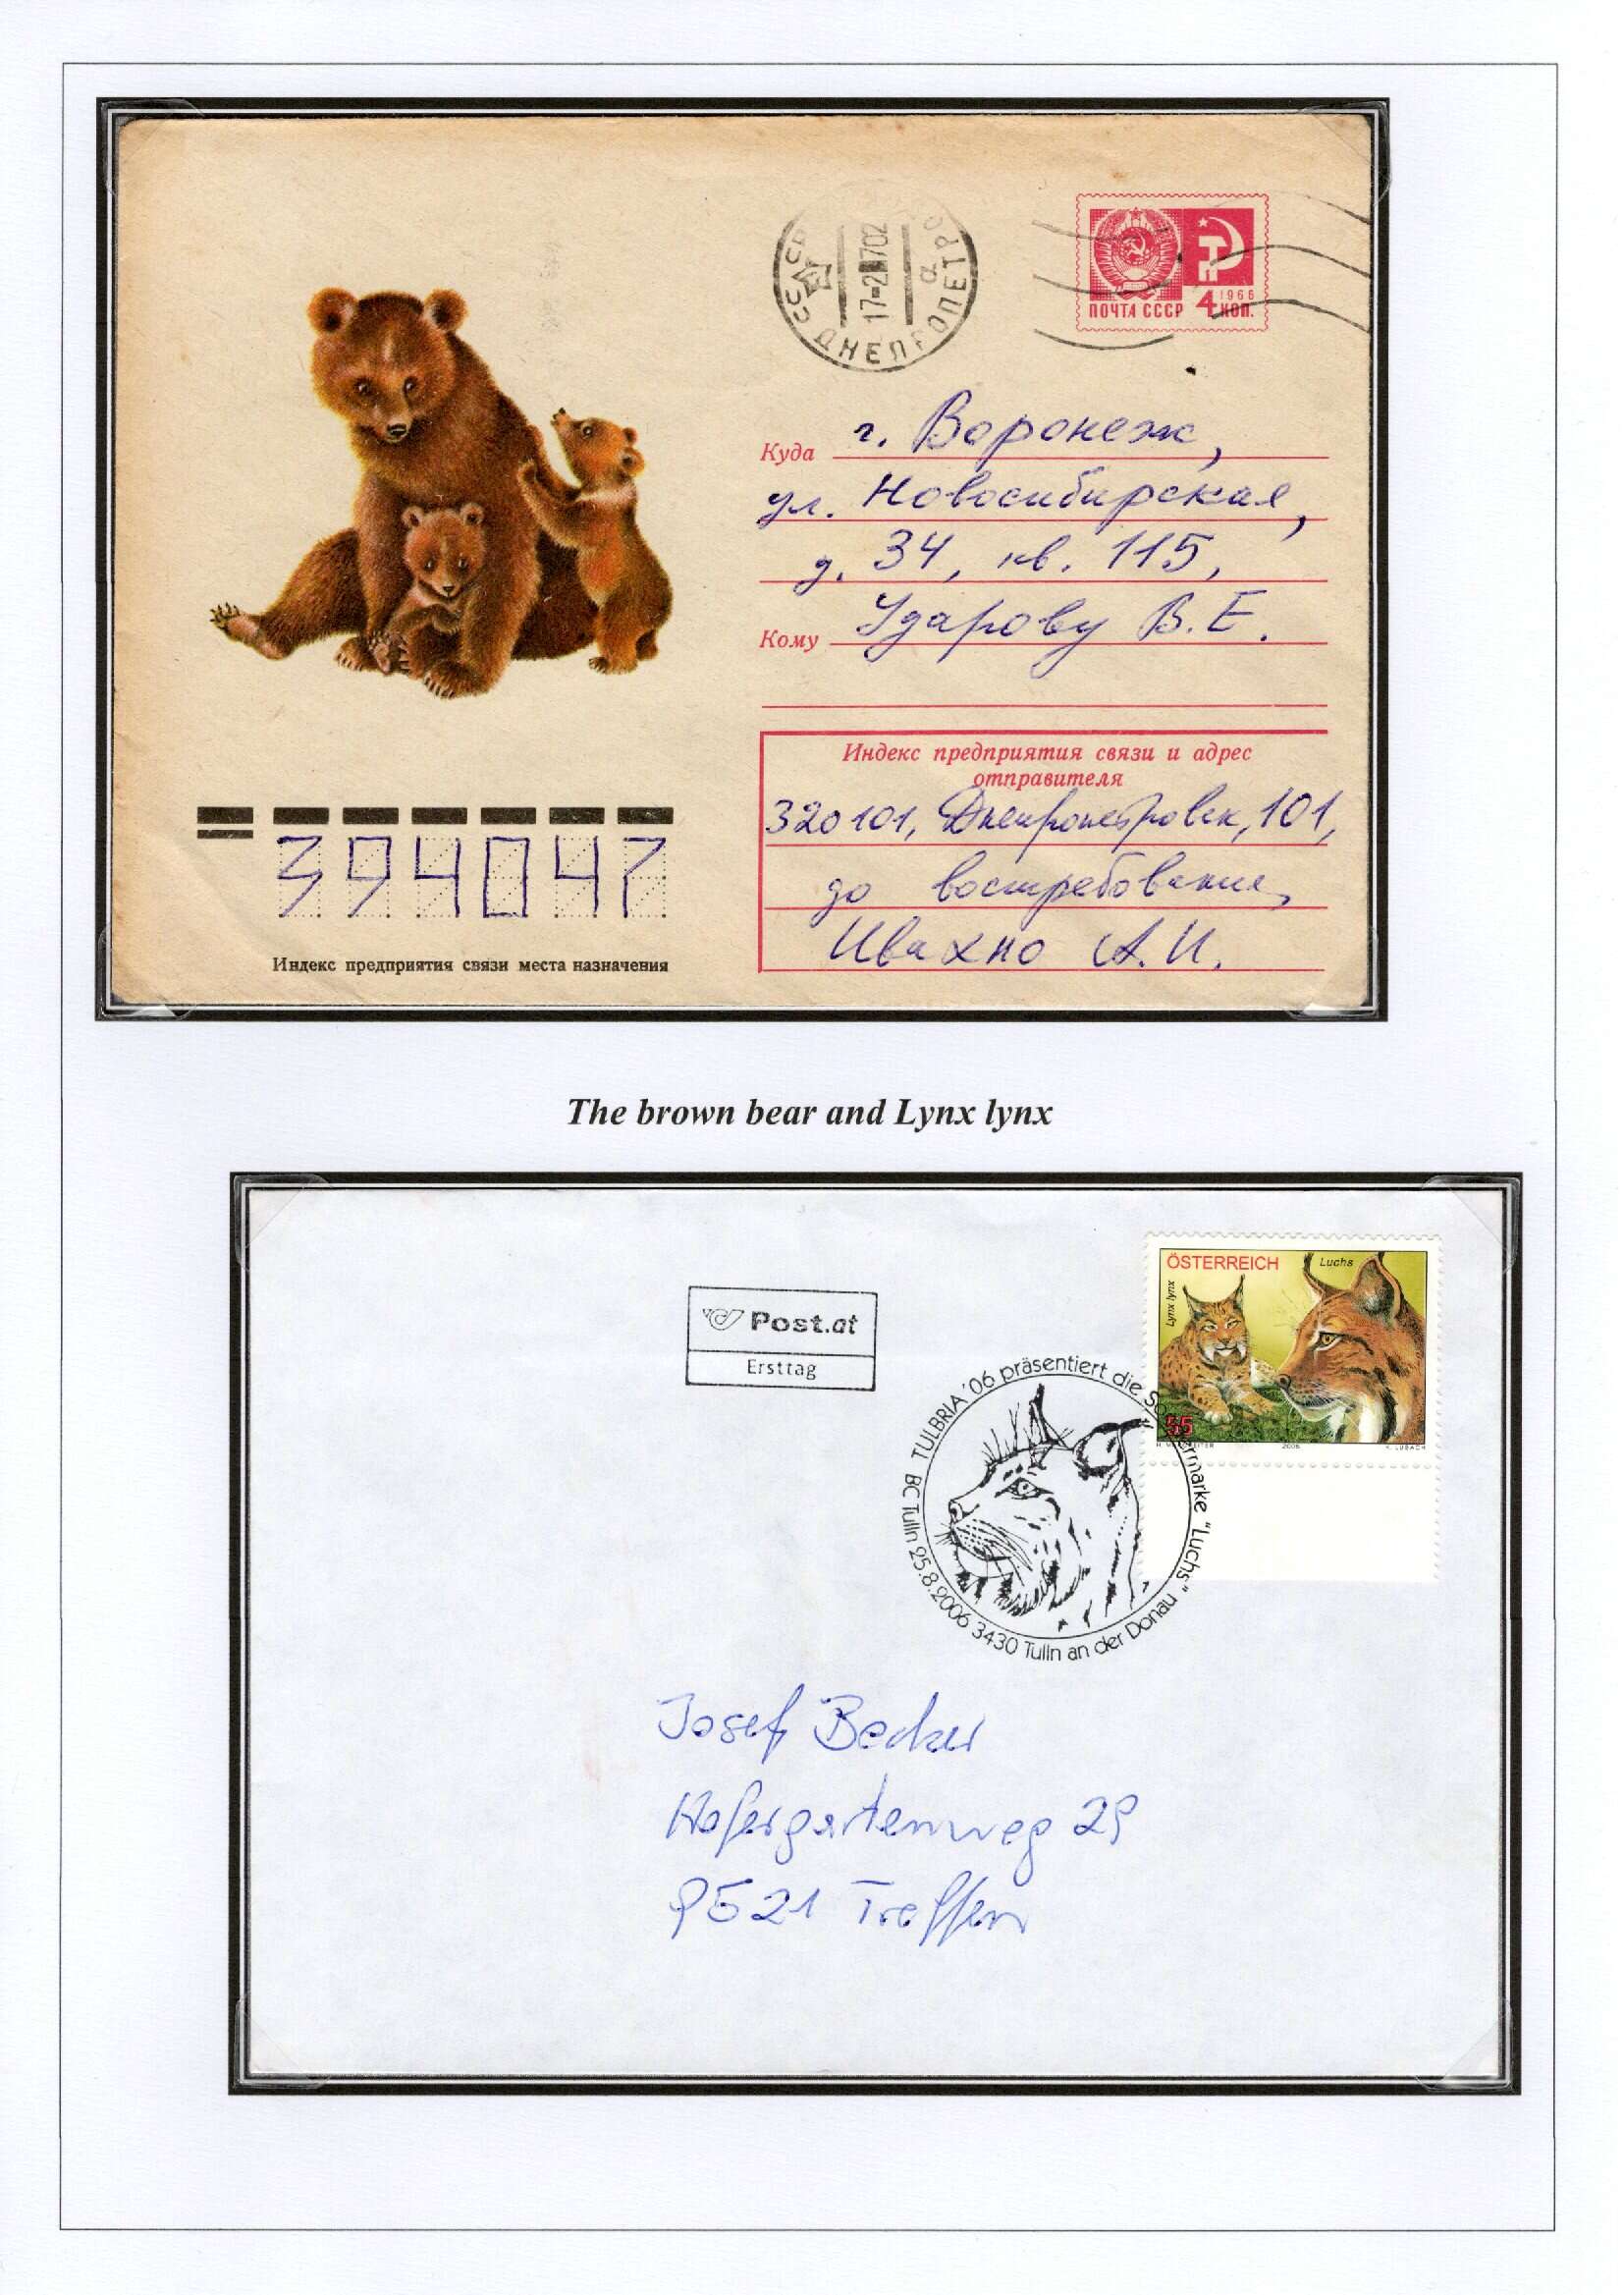 СССР ДНЕПРОПЕТРО
17-2 702
а
ПОЧТА СССР 4 1966 КОП.
Куда г. Воронеж,
ул. Новосибирская,
д. 34, кв. 115,
Кому Ударову В. Е.
Индекс предприятия связи и адрес
отправителя
320101, Днепропетровск, 101,
до востребования,
Ивахно А. И.
394047
Индекс предприятия связи места назначения
The brown bear and Lynx lynx
ÖSTERREICH
Luchs
Lynx lynx
55
2006
K. LUBACH
Post.at
Ersttag
TULBRIA '06 präsentiert die Sondermarke "Luchs"
BC Tulln 25.8.2006 3430 Tulln an der Donau
Josef Becker
Hafergartenweg 29
9521 Treffen